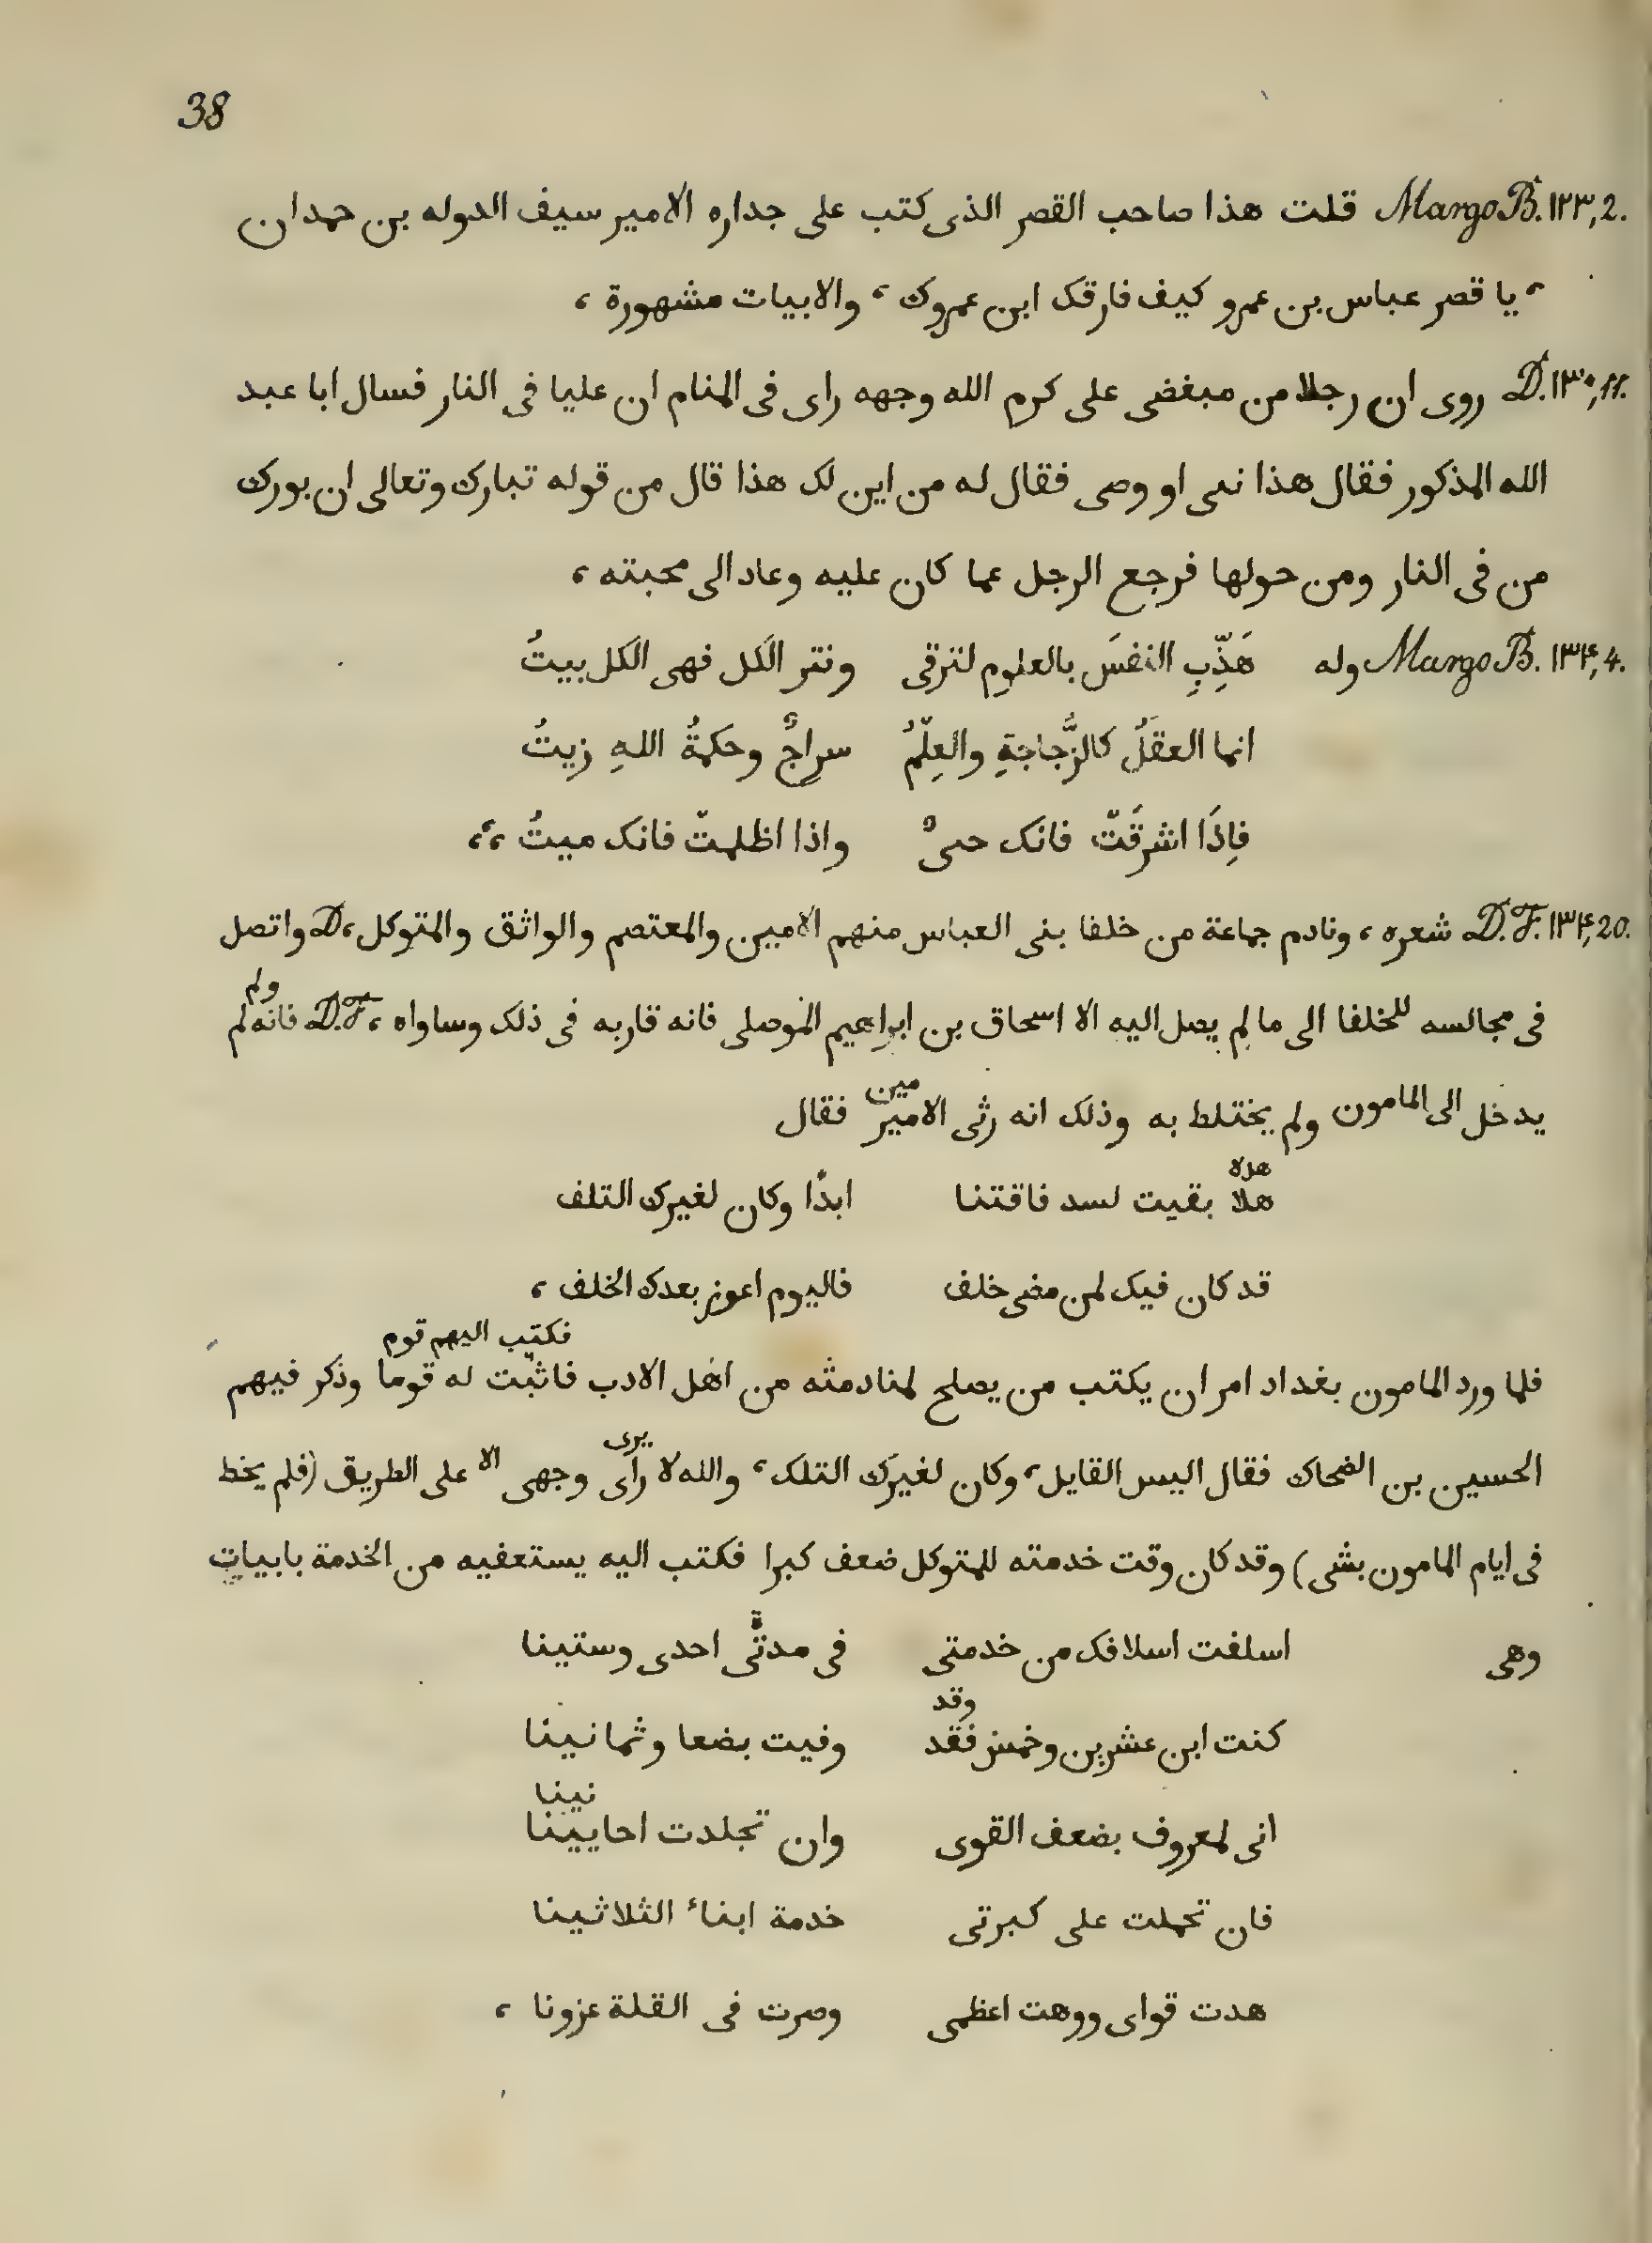 38
Margo B. ١٢٣, 2. قلت هذا صاحب القصر الذى كتب على جداره الامير سيف الدوله بن حمدان
، يا قصر عباس بن عمرو كيف فارقك ابن عمروك ، والابيات مشهورة ،
D. ١٣٠, 11. روى ان رجلا من مبغضى على كرم الله وجهه راى فى المنام ان عليا فى النار فسال ابا عبد
الله المذكور فقال هذا نبى او وصى فقال له من اين لك هذا قال من قوله تبارك وتعالى ان بورك
من فى النار ومن حولها فرجع الرجل عما كان عليه وعاد الى محبته ،
Margo B. ١٣٤, 4. وله هَذِّبِ النفسَ بالعلوم لترقى ونتر الكل فهى الكل بيتُ
انما العقلُ كالزُّجاجةِ والعِلْمُ سراجٌ وحكمةُ اللهِ زيتُ
فاِذَا اشرقَتْ فانك حىٌ واذا اظلمتْ فانك ميتُ ،،
D. F. ١٣٤, 20. شعره ، ونادم جماعة من خلفا بنى العباس منهم الامين والمعتصم والواثق والمتوكل ، D واتصل
ولم
فى مجالسه للخلفا الى ما لم يصل اليه الا اسحاق بن ابراهيم الموصلى فانه قاربه فى ذلك وساواه ، D. F. فانه لم
مين
يدخل الى المامون ولم يختلط به وذلك انه رثى الامير فقال
هلا بقيت لسد فاقتنا ابدًا وكان لغيرك التلف
قد كان فيك لمن مضى خلف فاليوم اعوز بعدك الخلف ،
فكتب اليهم قوم
فلما ورد المامون بغداد امر ان يكتب من يصلح لمنادمته من اهل الادب فاثبت له قوما وذكر فيهم
يرى
الحسين بن الضحاك فقال اليس القايل ، وكان لغيرك التلك ، والله لا رأى وجهى الا على الطريق (فلم يخط
فى ايام المامون بشى) وقد كان وقت خدمته للمتوكل ضعف كبرا فكتب اليه يستعفيه من الخدمة بابيات
وهى اسلفت اسلافك من خدمتى فى مدتى احدى وستينا
وقد
كنت ابن عشرين وخمس فقد وفيت بضعا وثمانينا
نينا
انى لمعروف بضعف القوى وان تجلدت احايينا
فان تحملت على كبرتى خدمة ابناء الثلاثينا
هدت قواى ووهت اعظمى وصرت فى القلة عزونا ،